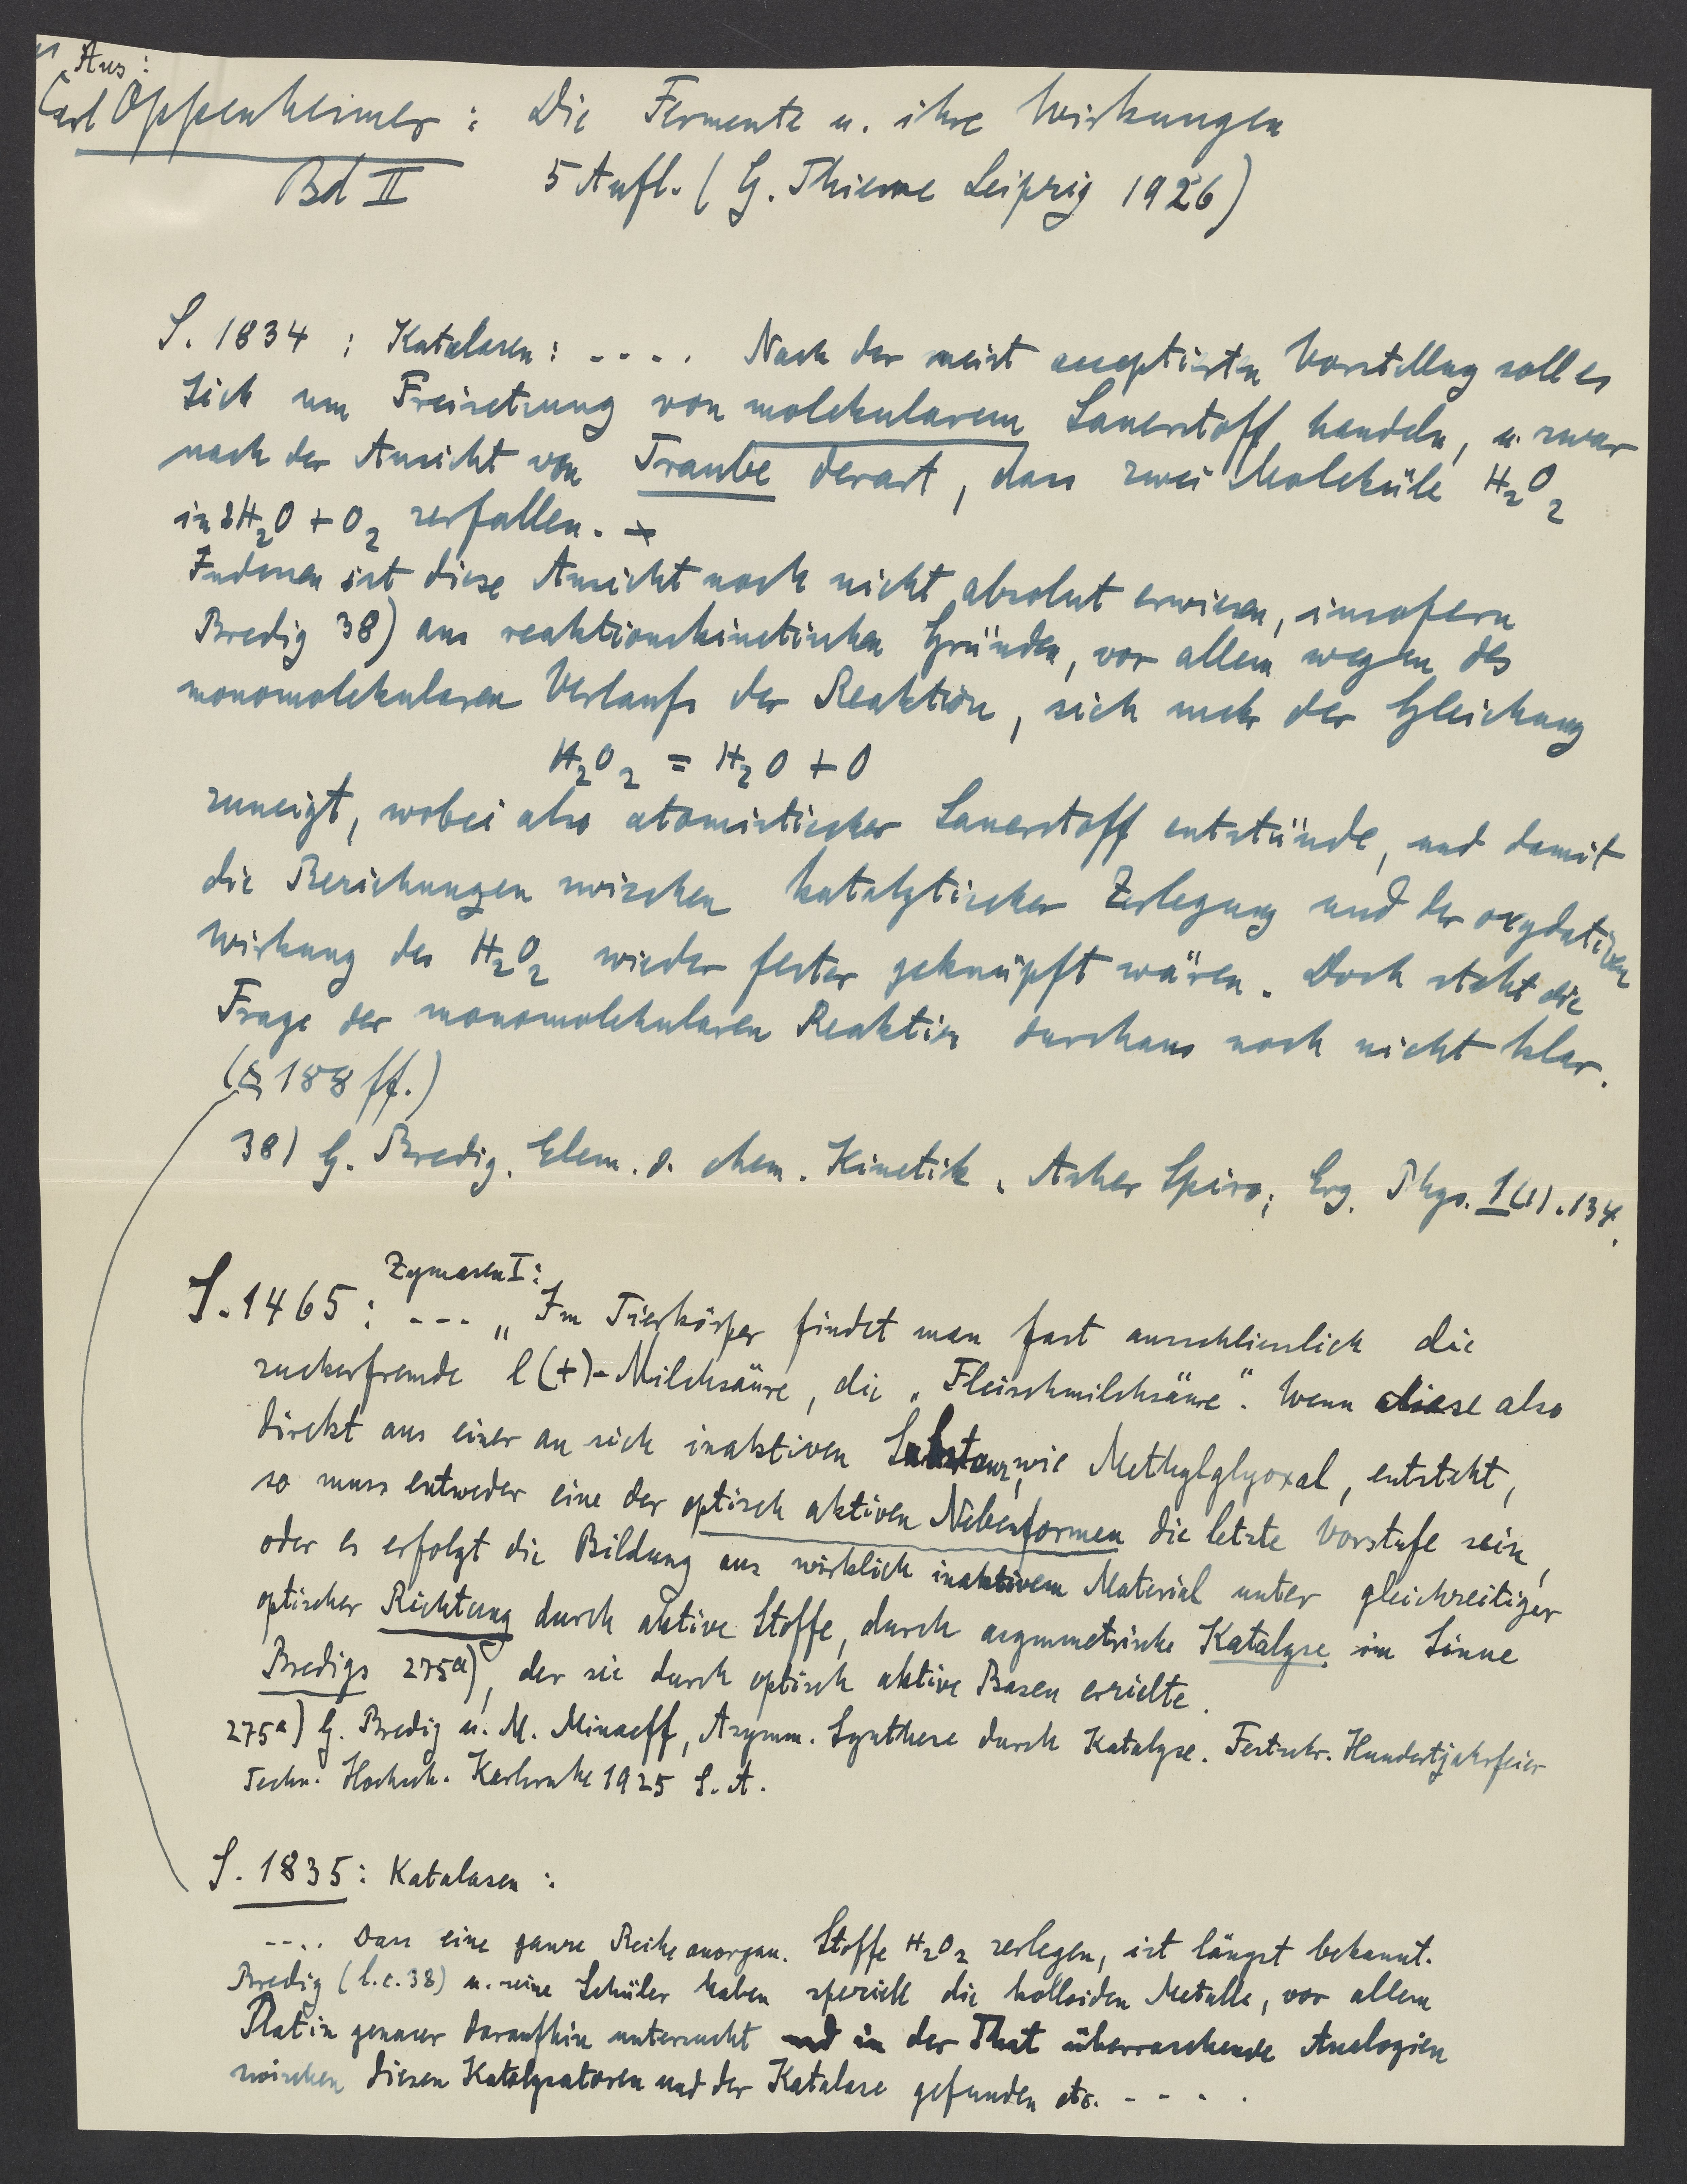 Aus:
Carl Oppenheimer : Die Fermente u. ihre Wirkungen
Bd II 5 Aufl. ( G. Thieme Leipzig 1926)
S. 1834 ; Katalasen : - - - . Nach der meist acceptierten Vorstellug soll es
sich um Freisetzung von molekularem Sauerstoff handeln, u. zwar
nach der Ansicht von Traube derart, dass zwei Moleküle H2O2
in 2H2O + O2 zerfallen. -
Indessen ist diese Ansicht noch nicht absolut erwiesen, insofern
Bredig 38) aus reaktionskinetischen Gründen, vor allem wegen des
monomolekularen Verlaufs der Reaktion, sich mehr der Gleichung
H2O2 = H2O + O
zuneigt, wobei also atomistischer Sauerstoff entstünde, und damit
die Beziehungen zwischen katalytischer Zerlegung und der oxydativen
Wirkung des H2O2 wieder fester geknüpft wären. Doch steht die
Frage der monomolekularen Reaktion durchaus noch nicht klar.
(S 188 ff.)
38) G. Bredig. Elem. d. chem. Kinetik, Asher Spiro; Erg. Phys. 1 (1). 134.
Zymasen I:
S. 1465 : - - - „ Im Tierkörper findet man fast ausschliesslich die
zuckerfremde l (+)-Milchsäure, die „Fleischmilchsäure“. Wenn diese also
direkt aus einer an sich inaktiven Substanz, wie Methylglyoxal, entsteht,
so muss entweder eine der optisch aktiven Nebenformen die letzte Vorstufe sein,
oder es erfolgt die Bildung aus wirklich inaktivem Material unter gleichzeitiger
optischer Richtung durch aktive Stoffe, durch asymmetrische Katalyse im Sinne
Bredigs 275a), der sie durch optisch aktive Basen erzielte.
275a) G. Bredig u. M. Minaeff, Asymm. Synthese durch Katalyse. Festschr. Hundertjahrfeier
Techn. Hochsch. Karlsruhe 1925 S. A.
S. 1835 : Katalasen :
- - . . Dass eine ganze Reihe anorgan. Stoffe H2O2 zerlegen, ist längst bekannt.
Bredig (l.c. 38) u. seine Schüler haben speziell die kolloiden Metalle, vor allem
Platin genauer daraufhin untersucht und in der That überraschende Analogien
zwischen diesen Katalysatoren und der Katalase gefunden etc. - - - .